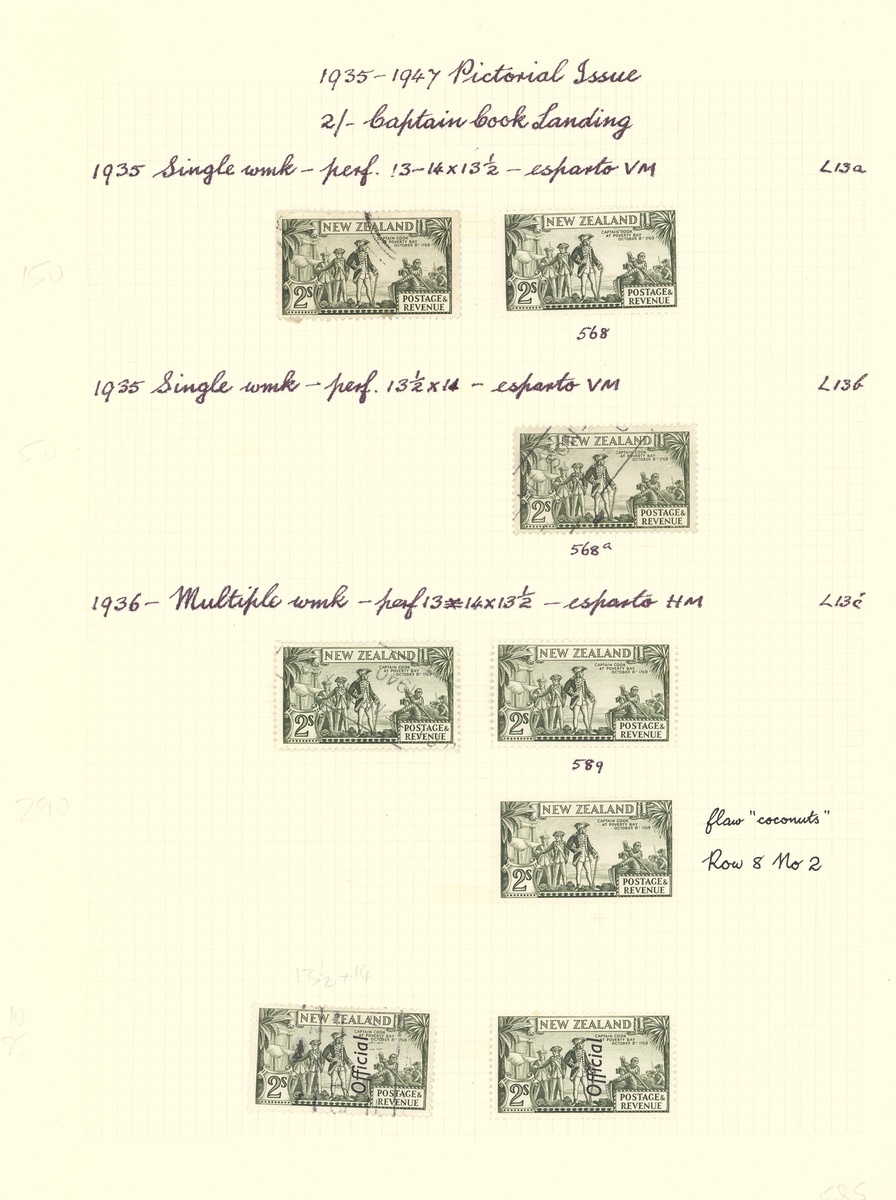 1935-1947 Pictorial Issue
2/- Captain Cook Landing
1935 Single wmk - perf. 13-14x13½ - esparto VM L13a
NEW ZEALAND
CAPTAIN COOK
AT POVERTY BAY
OCTOBER 8TH 1769
2S
POSTAGE&
REVENUE
NEW ZEALAND
CAPTAIN COOK
AT POVERTY BAY
OCTOBER 8TH 1769
2S
POSTAGE&
REVENUE
150
568
1935 Single wmk - perf. 13½x14 - esparto VM L13b
NEW ZEALAND
CAPTAIN COOK
AT POVERTY BAY
OCTOBER 8TH 1769
2S
POSTAGE&
REVENUE
568a
1936- Multiple wmk - perf 13-14x13½ - esparto HM L13c
NEW ZEALAND
CAPTAIN COOK
AT POVERTY BAY
OCTOBER 8TH 1769
2S
POSTAGE&
REVENUE
NEW ZEALAND
CAPTAIN COOK
AT POVERTY BAY
OCTOBER 8TH 1769
2S
POSTAGE&
REVENUE
589
290
NEW ZEALAND
CAPTAIN COOK
AT POVERTY BAY
OCTOBER 8TH 1769
2S
POSTAGE&
REVENUE
flaw "coconuts"
Row 8 No 2
13½x14
NEW ZEALAND
CAPTAIN COOK
AT POVERTY BAY
OCTOBER 8TH 1769
Official
2S
POSTAGE&
REVENUE
NEW ZEALAND
CAPTAIN COOK
AT POVERTY BAY
OCTOBER 8TH 1769
Official
2S
POSTAGE&
REVENUE
10